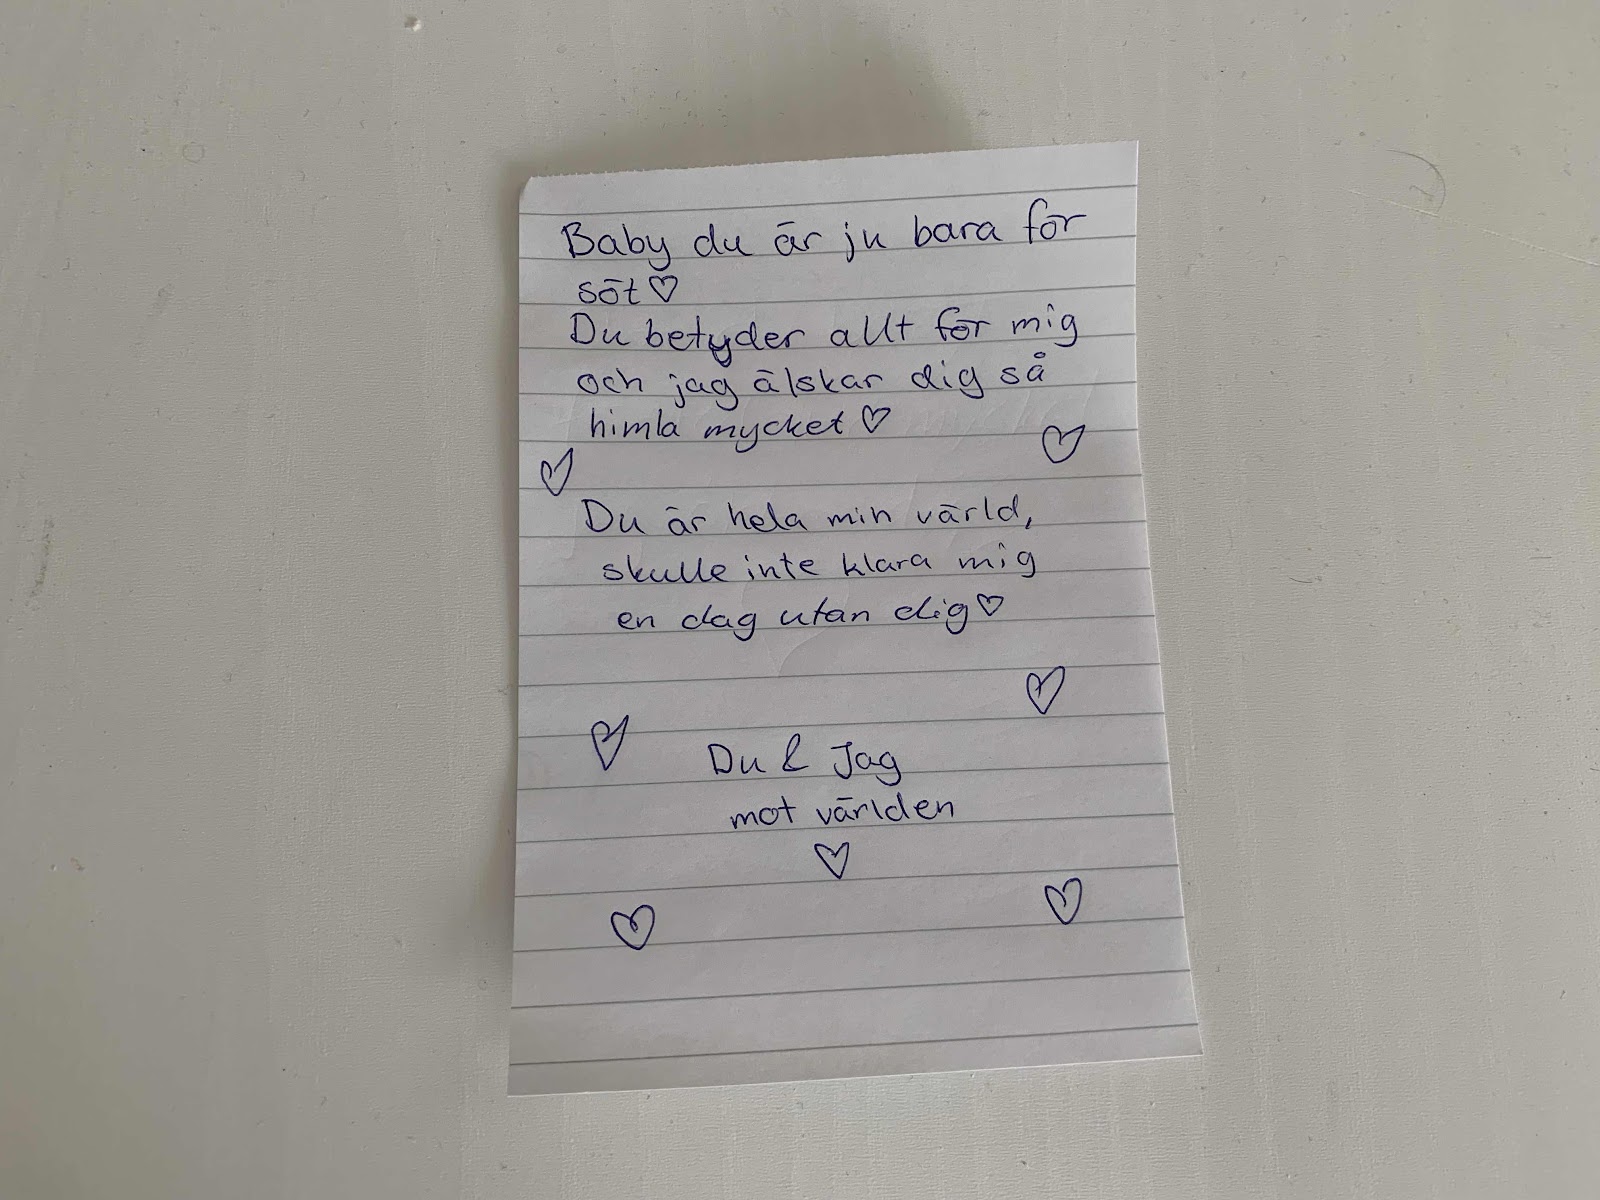 Baby du är ju bara för
söt♡
Du betyder allt för mig
och jag älskar dig så
himla mycket♡
Du är hela min värld,
skulle inte klara mig
en dag utan dig♡
Du & Jag
mot världen
♡